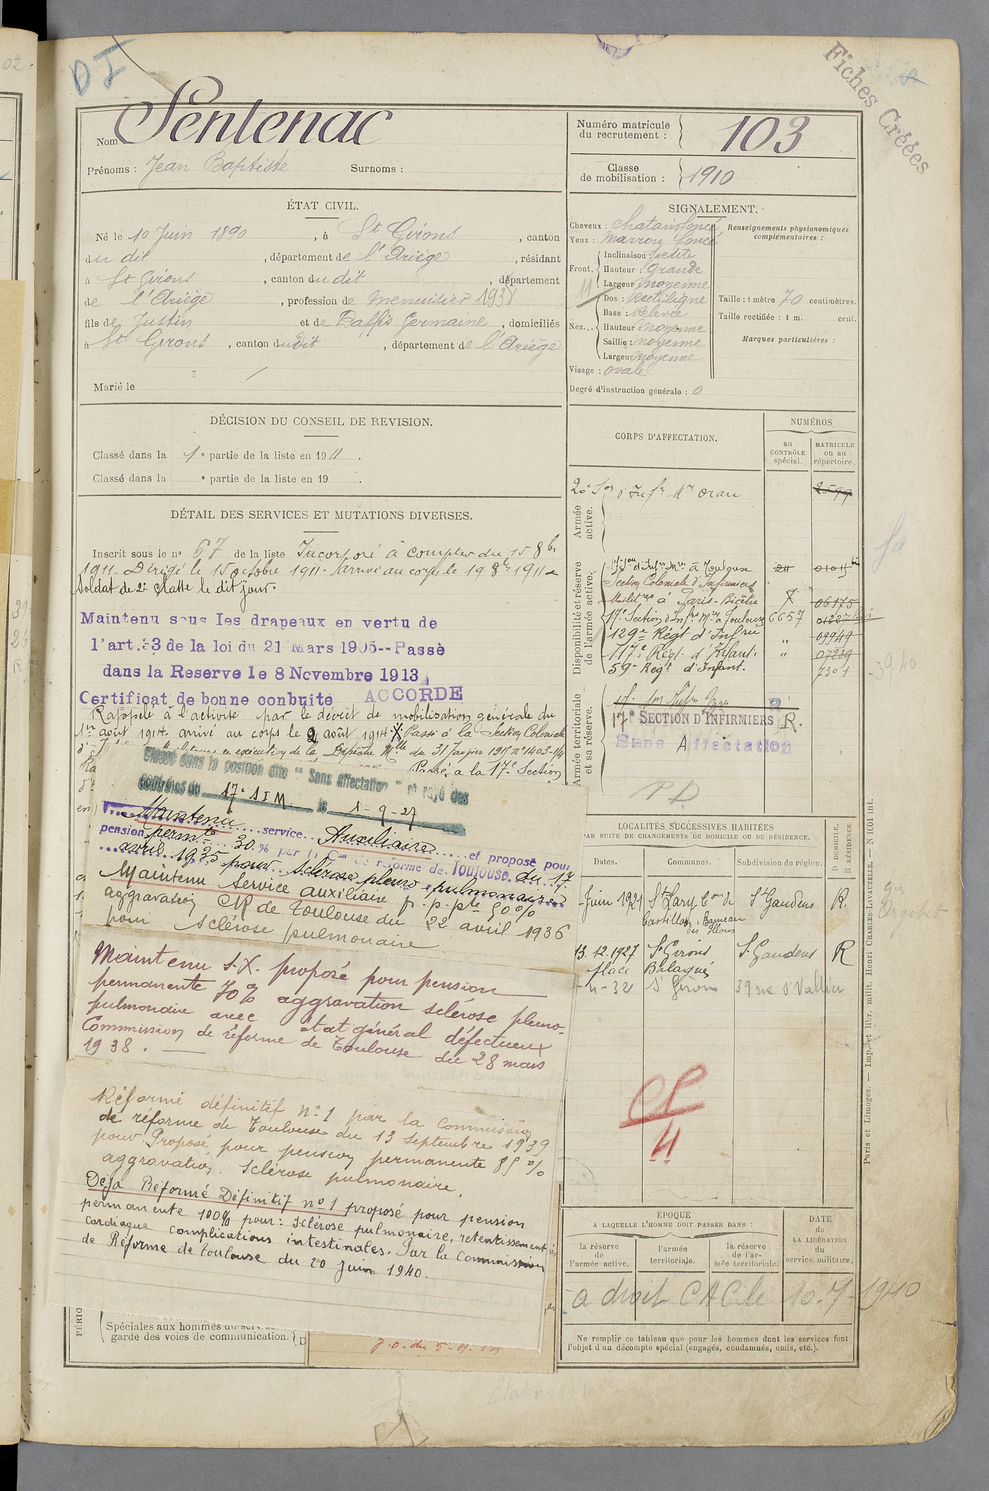 DI
Fiches Créées
Nom Sentenac
Prénoms : Jean Baptiste Surnoms :
Numéro matricule du recrutement : 103
Classe de mobilisation : 1910
ÉTAT CIVIL.
Né le 10 Juin 1890, à St Girons, canton
du dit, département de l'Ariège, résidant
à St Girons, canton du dit, département
de l'Ariège, profession de menuisier 1938
fils de Justin et de Baffis Germaine, domiciliés
à St Girons, canton du dit, département de l'Ariège
Marié le
SIGNALEMENT.
Cheveux : chatain foncé
Yeux : marron foncé
Front. Inclinaison petite
Hauteur : Grande
Largeur moyenne
Nez... Dos : Rectiligne
Base : Relevée
Hauteur moyenne
Saillie : moyenne
Largeur moyenne
Visage : ovale
Renseignements physionomiques complémentaires :
Taille : 1 mètre 70 centimètres.
Taille rectifiée : 1 m. cent.
Marques particulières :
Degré d'instruction générale : 0
DÉCISION DU CONSEIL DE REVISION.
Classé dans la 1e partie de la liste en 1911.
Classé dans la e partie de la liste en 19 .
DÉTAIL DES SERVICES ET MUTATIONS DIVERSES.
Inscrit sous le n° 67 de la liste Incorporé à compter du 15 8bre
1911. Dirigé le 15 octobre 1911. Arrivé au corps le 19 8bre 1911
Soldat de 2e classe le dit jour.
Maintenu sous les drapeaux en vertu de
l'art.33 de la loi du 21 Mars 1905--Passé
dans la Reserve le 8 Novembre 1913
Certificat de bonne conduite ACCORDÉ
Rappelé à l'activité par le décret de mobilisation générale du
1er août 1914. arrivé au corps le 2 août 1914 X Passé à la Section Coloniale
en exécution de la Dépêche Mlle du 31 Janvier 1917 n° 1403-1/4
Passé à la 17e Section
Classé dans la position dite "Sans Affectation" et rayé des
contrôles du 17e S I M le 1-9-27
Maintenu service Auxiliaire et proposé pour
pension permte 30 % par la Con de réforme de Toulouse du 17
avril 1935 pour sclérose pleuro pulmonaire
Maintenu Service auxiliaire p. p. pte 50 %
aggravation CR de Toulouse du 22 avril 1936
pour sclérose pulmonaire
Maintenu S.X. proposé pour pension
permanente 70 % aggravation sclérose pleuro-
pulmonaire avec état général défectueux
Commission de réforme de Toulouse du 28 mars
1938.
Réformé définitif n° 1 par la Commission
de réforme de Toulouse du 13 Septembre 1939
pour Proposé pour pension permanente 85 %
aggravation. Sclérose pulmonaire.
Déjà Réformé Définitif n° 1 proposé pour pension
permanente 100% pour : sclérose pulmonaire, retentissement
cardiaque complications intestinales. Par la Commission
de Réforme de Toulouse du 20 Juin 1940.
Spéciales aux hommes du
garde des voies de communication.
CORPS D'AFFECTATION.
NUMÉROS
AU CONTRÔLE spécial.
MATRICULE ou au répertoire.
Armée active.
Disponibilité et réserve de l'armée active.
Section Coloniale d'Infirmiers
Militres à Paris-Bicêtre X 06175
6657
129e Régt d'Infrie " 09949
117e Régt d'Infant. " 07239
59e Régt d'Infant. 7304
Armée territoriale et sa réserve.
17e SECTION D'INFIRMIERS R.
Sans Affectation
PD
LOCALITÉS SUCCESSIVES HABITÉES
PAR SUITE DE CHANGEMENTS DE DOMICILE OU DE RÉSIDENCE.
Dates. Communes. Subdivision de région. D DOMICILE, R RÉSIDENCE.
Juin 1921 St Lary Con de Castillon, Hameau des Illous St Gaudens R.
13.12.1927 St Girons place Balagué St Gaudens R
-4-32 St Girons 39 rue St Vallier
4
ÉPOQUE
A LAQUELLE L'HOMME DOIT PASSER DANS :
la réserve de l'armée active.
l'armée territoriale.
la réserve de l'armée territoriale.
DATE de LA LIBÉRATION du service militaire.
a droit CAC le 10-7-1940
Ne remplir ce tableau que pour les hommes dont les services font
l'objet d'un décompte spécial (engagés, condamnés, omis, etc.).
Paris et Limoges. — Imp. et libr. milit. Henri CHARLES-LAVAUZELLE. — N 1001 int.